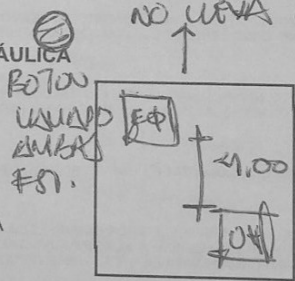 NO LLEVA
ÁULICA
BOTON
LLAMADO
AMBAS
EST.
EΦ
<1.00